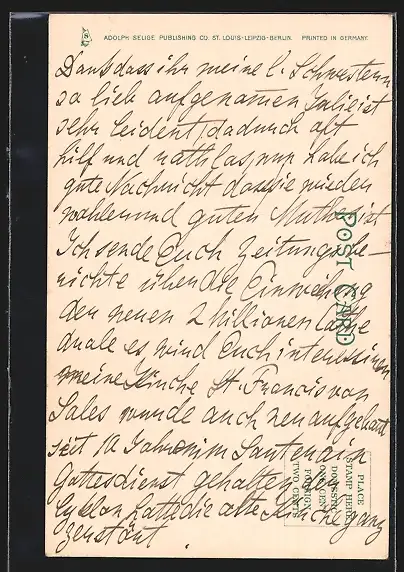 ADOLPH SELIGE PUBLISHING CO. ST. LOUIS-LEIPZIG-BERLIN. PRINTED IN GERMANY.
Dank dass ihr meine l. Schwestern
so lieb aufgenomen Julie ist
sehr leident, dadurch oft
hilf und rathlos, nun habe ich
gute Nachricht dass sie wieder
wohler und guten Muthes ist
Ich sende Euch Zeitungsbe-
richte über die Einweihung
der neuen 2 Millionen Cathe
drale es wird Euch interessieren
meine Kirche St. Francis von
Sales wurde auch neu aufgebaut
seit 10 Jahren im Souterain
Gottesdienst gehalten der
Cyklon hatte die alte Kirche ganz
zerstört.
POST CARD
PLACE
STAMP HERE
DOMESTIC
ONE CENT
FOREIGN
TWO CENTS